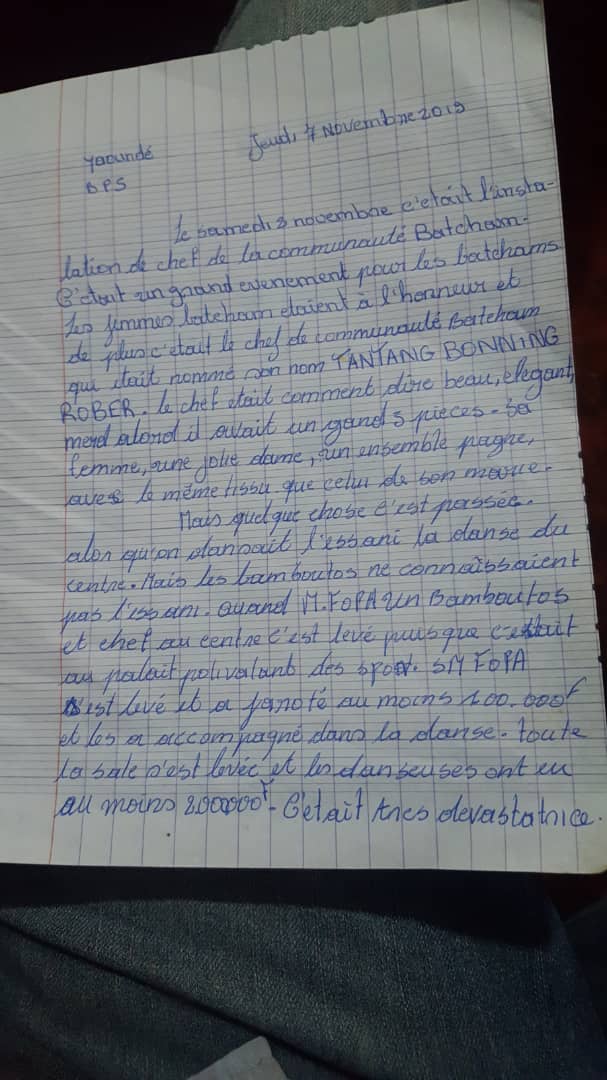 Yaoundé
BPS
Jeudi 7 Novembre 2019
le samedi 3 novembre c'etait l'insta-
lation de chef de la communauté Batcham.
C'était un grand evenement pour les batchams
Les femmes batcham etaient à l'honneur et
de plus c'etait le chef de communauté Batcham
qui était nommé son nom TANTANG BONNING
ROBER. le chef était comment dire beau, élegant,
merd alond il avait un gand 3 pièces. Sa
femme, une jolie dame, un ensemble pagne,
avec le même tissu que celui de son
Mais quelque chose c'est passée.
alon qu'on danpait l'essani la danse du
centre. Mais les bamboutos ne connaissaient
pas l'issani. Quand M. FOPA un Bamboutos
et chef au centre c'est levé puisque c'était
au palait polivalant des sport. SM FOPA
s'est levé et a faroté au moins 100.000f
et les a accompagné dans la danse. toute
la sale s'est levée et les danseuses ont eu
au moins 200000f. C'était tres devastatrice.